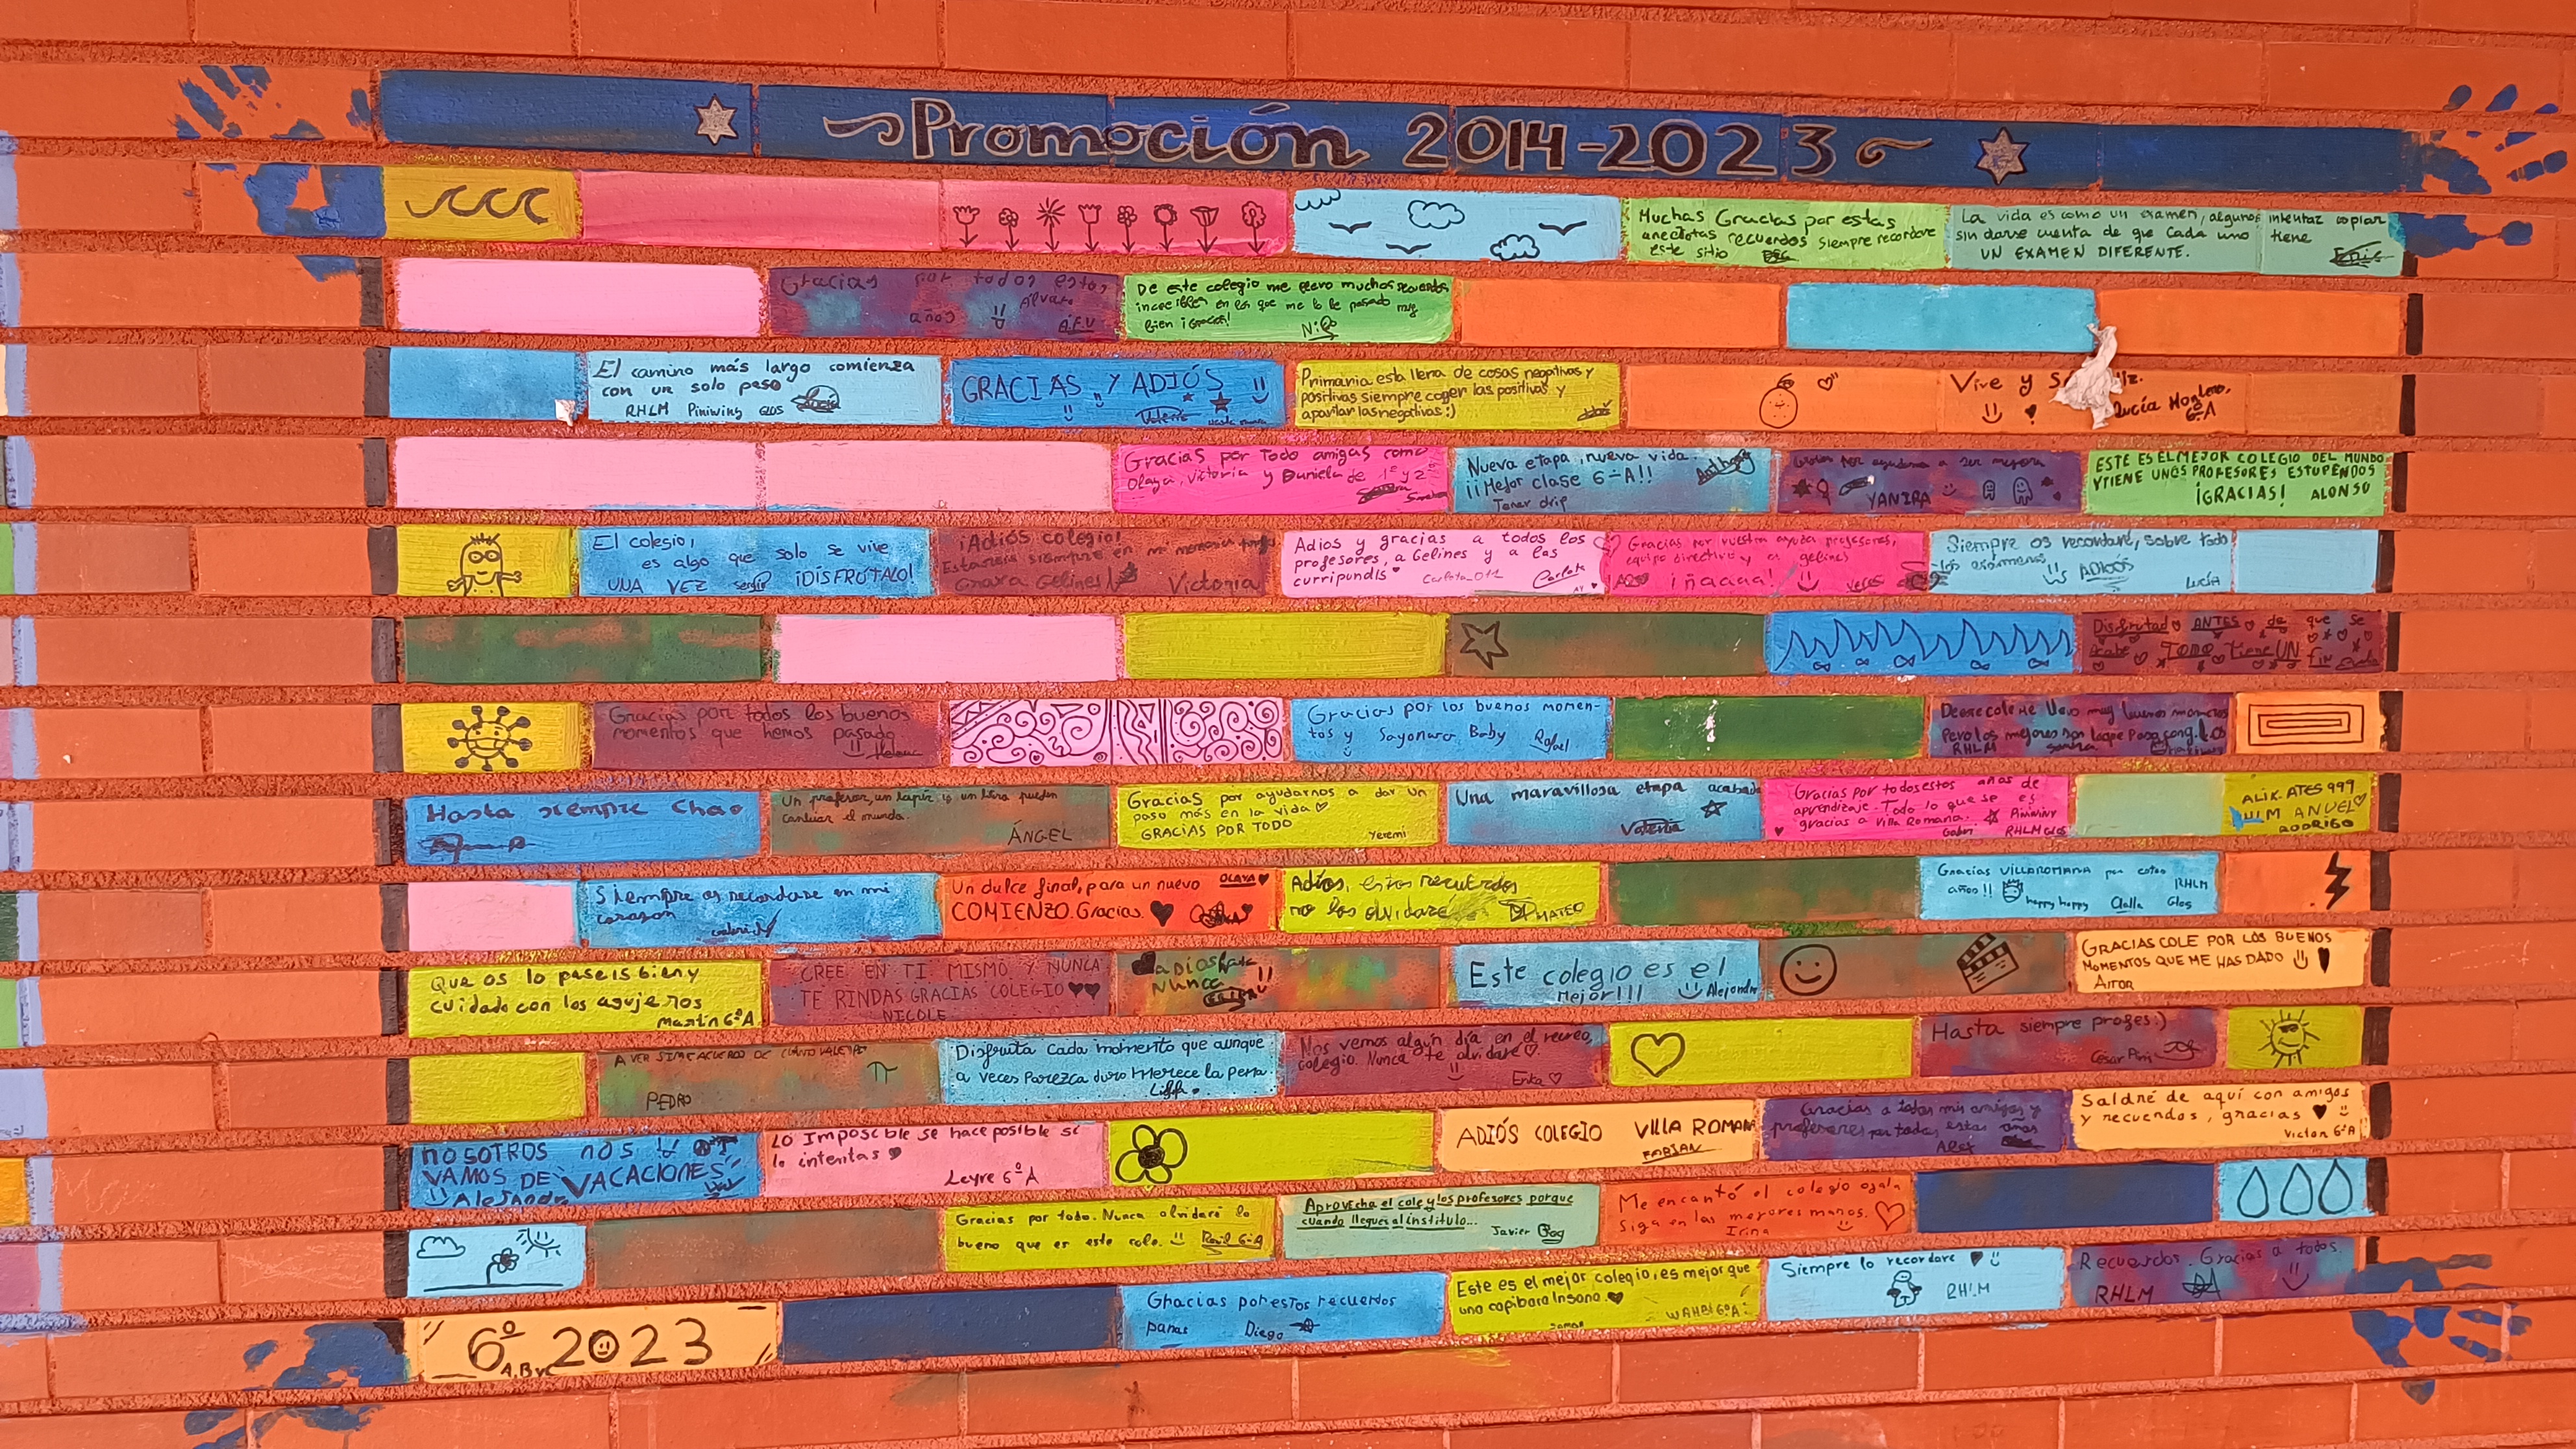 Promoción 2014-2023
Muchas Gracias por estas
anecdotas recuerdos siempre recordare
este sitio
La vida es como un examen, algunos intentaz copiar
sin darse cuenta de que cada uno tiene
UN EXAMEN DIFERENTE.
Eric
Gracias por todos estos
años Álvaro
A.F.V
De este colegio me llevo muchos recuerdos
increibles en los que me lo he pasado muy
bien ¡Gracias!
El camino más largo comienza
con un solo paso
RHLM Piniwiny GLOS Lucía
GRACIAS Y ADIÓS
Valeria
Primaria esta llena de cosas negativas y
positivas siempre coger las positivas y
apartar las negativas :)
Vive y
Lucía
6ºA
Gracias por todo amigas como
Olaya, Victoria y Daniela de 1º y 2º
Nueva etapa, nueva vida.
¡¡Mejor clase 6-A!!
Tener drip
Anthony
Gracias por ayudarme a ser mejora
YANIRA
ESTE ES EL MEJOR COLEGIO DEL MUNDO
Y TIENE UNOS PROFESORES ESTUPENDOS
¡GRACIAS! ALONSO
El colegio,
es algo que solo se vive
UNA VEZ Sergio ¡DISFRÚTALO!
¡Adiós colegio!
Estarais siempre en mi memoria
Gelines! Victoria
Adios y gracias a todos los
profesores, a Gelines y a las
curripundis
Carlota_011 Carlota
Gracias por vuestra ayuda profesores,
equipo directivo y a gelines
¡ñacaa!
Siempre os recordaré, sobre todo
los exámenes ADIÓS
LUCÍA
Disfrutad ANTES de que se
Acabe TODO tiene UN fin
Gracias por todos los buenos
momentos que hemos pasado
Gracias por los buenos momen-
tos y Sayonara Baby Rafael
De este cole me llevo muy buenos momentos
Pero los mejores son los que pasa con
RHLM Sandra
Hasta siempre Chao
Un profesor, un lapiz y un libro pueden
cambiar el mundo.
ÁNGEL
Gracias por ayudarnos a dar un
paso más en la vida
GRACIAS POR TODO
Yeremi
Una maravillosa etapa acabada
Valeria
Gracias por todos estos años de
aprendizaje. Todo lo que se es
gracias a Villa Romana. Piniwiny
RHLM GLOS
ALIK.ATES 999
MANUEL
RODRIGO
Siempre os recordare en mi
corazon
Gabriel
Un dulce final, para un nuevo OLAYA
COMIENZO. Gracias.
Adios, estos recuerdos
no los olvidaré MATEO
Gracias VILLAROMANA por estos
años!! RHLM
happy happy Glos
Que os lo paseis bien y
cuidado con los agujeros
Martín 6ºA
CREE EN TI MISMO Y NUNCA
TE RINDAS GRACIAS COLEGIO
NICOLE
ADIOS hasta
Nunca
Este colegio es el
Mejor!!! Alejandro
GRACIAS COLE POR LOS BUENOS
MOMENTOS QUE ME HAS DADO
AITOR
A VER SI ME ACUERDO DE CUANTO VALE PI
π
PEDRO
Disfruta cada momento que aunque
a veces Parezca duro Merece la pena.
Nos vemos algún día en el recreo,
colegio. Nunca te olvidaré
Erika
Hasta siempre profes:)
César
NOSOTROS NOS
VAMOS DE VACACIONES
Alejandro
LO Imposible se hace posible si
lo intentas
Leyre 6ºA
ADIÓS COLEGIO VILLA ROMANA
FABIAN
Gracias a todos mis amigos y
profesores por todos estos años
Alex
Saldré de aquí con amigos
y recuerdos, gracias
Victor 6ºA
Gracias por todo. Nunca olvidaré lo
bueno que es este cole. Raúl 6-A
Aprovecha el cole y los profesores porque
cuando llegues al instituto...
Javier
Me encantó el colegio ojala
siga en las mejores manos.
Irina
6º 2023
A, B y C
Ghacias por estos recuerdos
panas Diego
Este es el mejor colegio, es mejor que
una capibara Insana.
WAHBI 6ºA
Siempre lo recordare
RHLM
Recuerdos. Gracias a todos.
RHLM